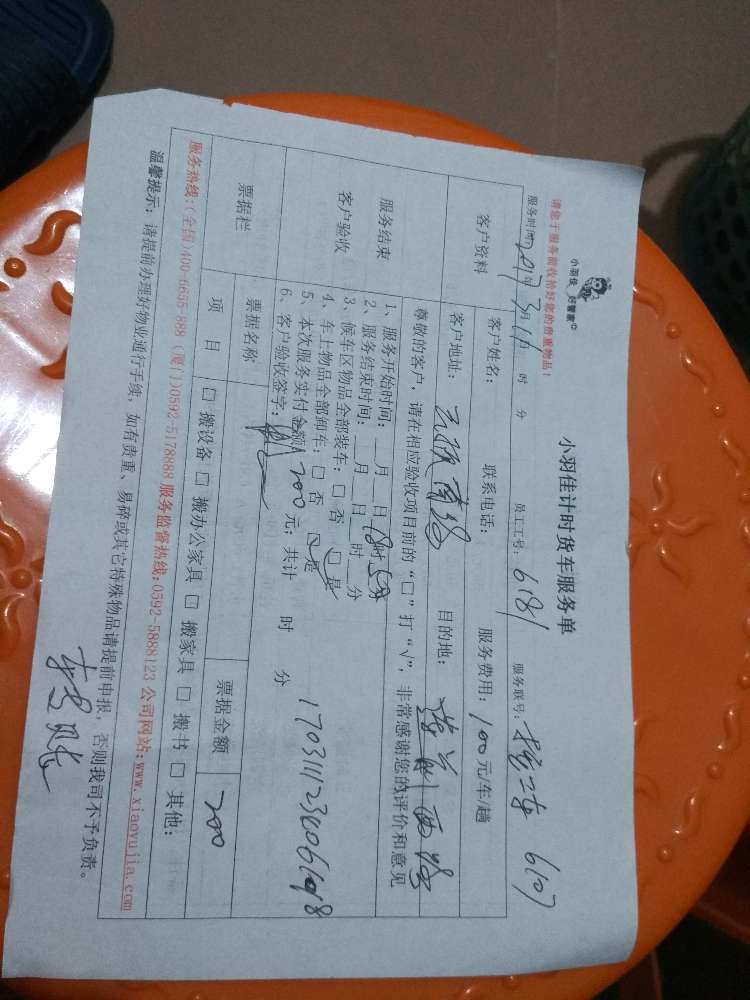 小羽佳 好管家
小羽佳计时货车服务单
请您于服务前收拾好您的贵重物品！
服务时间：2017年3月11日 时 分 员工工号：6181 服务联号： 6107
客户资料
客户姓名： 联系电话： 服务费用：100元/车/趟
客户地址： 目的地：
服务结束
客户验收
尊敬的客户，请在相应验收项目前的“□”打“√”，非常感谢您的评价和意见
1、服务开始时间：__月__日18时50分
2、服务结束时间：__月__日__时__分
3、候车区物品全部装车：□ 否 □ 是
4、车上物品全部卸车：□ 否 □ 是
5、本次服务实付金额 200 元；共计 时 分
6、客户验收签字：
票据栏
票据名称 票据金额 200
项 目 □ 搬设备 □ 搬办公家具 □ 搬家具 □ 搬书 □ 其他：
服务热线：（全国）400-6655-888（厦门）0592-5178888 服务监督热线：0592-5888123 公司网站：www.xiaoyujia.com
温馨提示：请提前办理好物业通行手续，如有贵重、易碎或其它特殊物品请提前申报，否则我司不予负责。